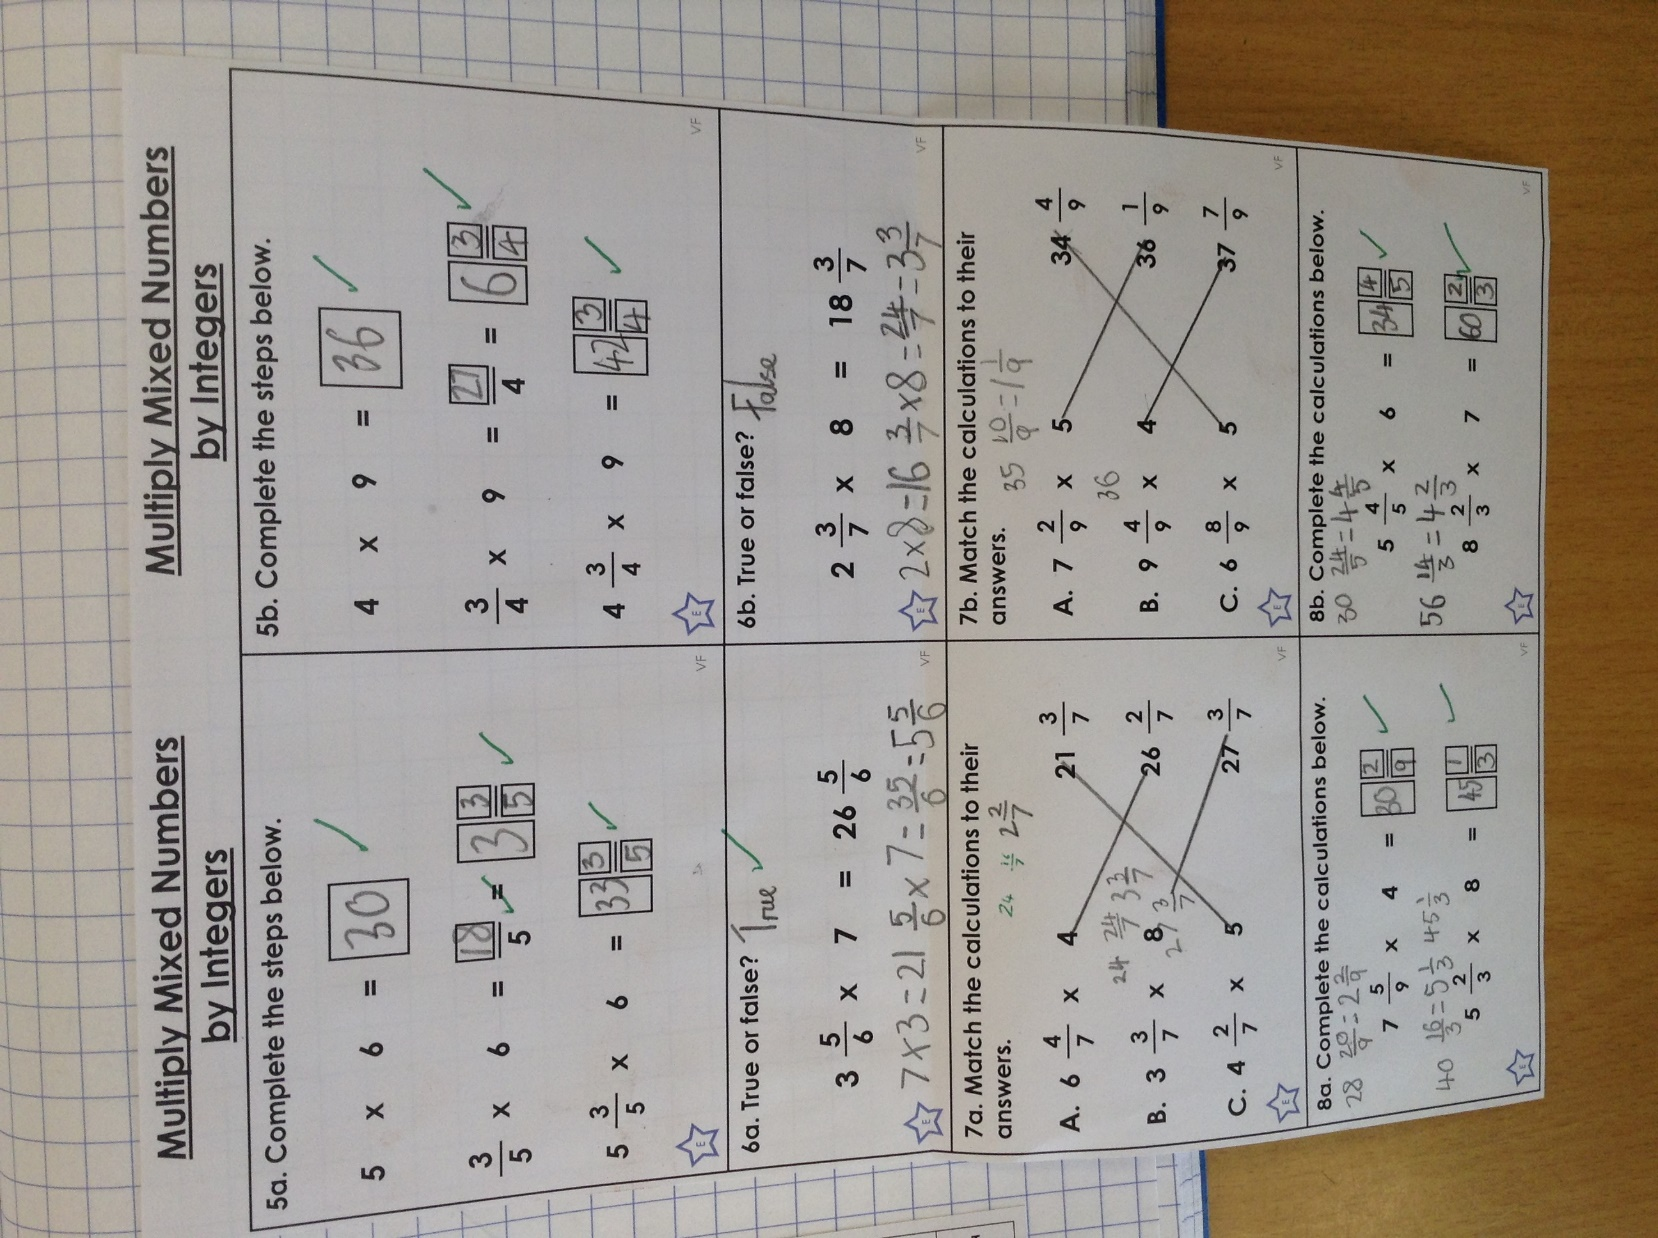 Multiply Mixed Numbers
by Integers
5a. Complete the steps below.
5 x 6 = 30
3/5 x 6 = 18/5 = 3 3/5
5 3/5 x 6 = 33 3/5
E
VF
6a. True or false? True
3 5/6 x 7 = 26 5/6
7 x 3 = 21 5/6 x 7 = 35/6 = 5 5/6
E
VF
7a. Match the calculations to their
answers.
24 16/7 2 2/7
A. 6 4/7 x 4 21 3/7
24 24/7 3 3/7
B. 3 3/7 x 8 26 2/7
27 3/7
C. 4 2/7 x 5 27 3/7
E
VF
8a. Complete the calculations below.
28 20/9 = 2 2/9
7 5/9 x 4 = 30 2/9
40 16/3 = 5 1/3 45 1/3
5 2/3 x 8 = 45 1/3
E
VF
Multiply Mixed Numbers
by Integers
5b. Complete the steps below.
4 x 9 = 36
3/4 x 9 = 27/4 = 6 3/4
4 3/4 x 9 = 42 3/4
E
VF
6b. True or false? False
2 3/7 x 8 = 18 3/7
2 x 8 = 16 3/7 x 8 = 24/7 = 3 3/7
E
VF
7b. Match the calculations to their
answers.
35 10/9 = 1 1/9
A. 7 2/9 x 5 34 4/9
36
B. 9 4/9 x 4 36 1/9
C. 6 8/9 x 5 37 7/9
E
VF
8b. Complete the calculations below.
30 24/5 = 4 4/5
5 4/5 x 6 = 34 4/5
56 14/3 = 4 2/3
8 2/3 x 7 = 60 2/3
E
VF